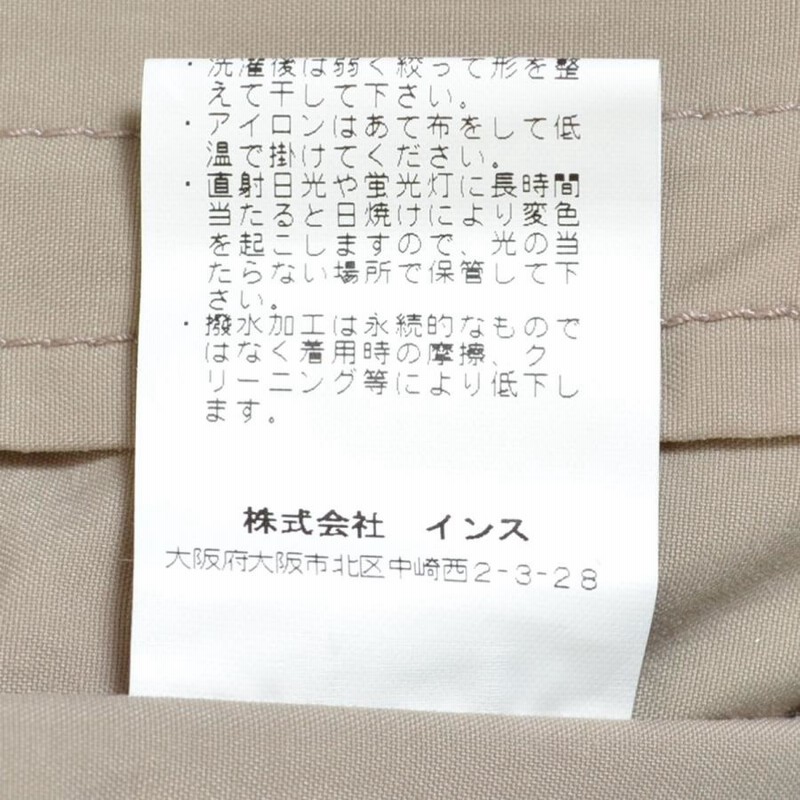 ・洗濯後は弱く絞って形を整
えて干して下さい。
・アイロンはあて布をして低
温で掛けてください。
・直射日光や蛍光灯に長時間
当たると日焼けにより変色
を起こしますので、光の当
たらない場所で保管して下
さい。
・撥水加工は永続的なもので
はなく着用時の摩擦、ク
リーニング等により低下し
ます。
株式会社 インス
大阪府大阪市北区中崎西2-3-28